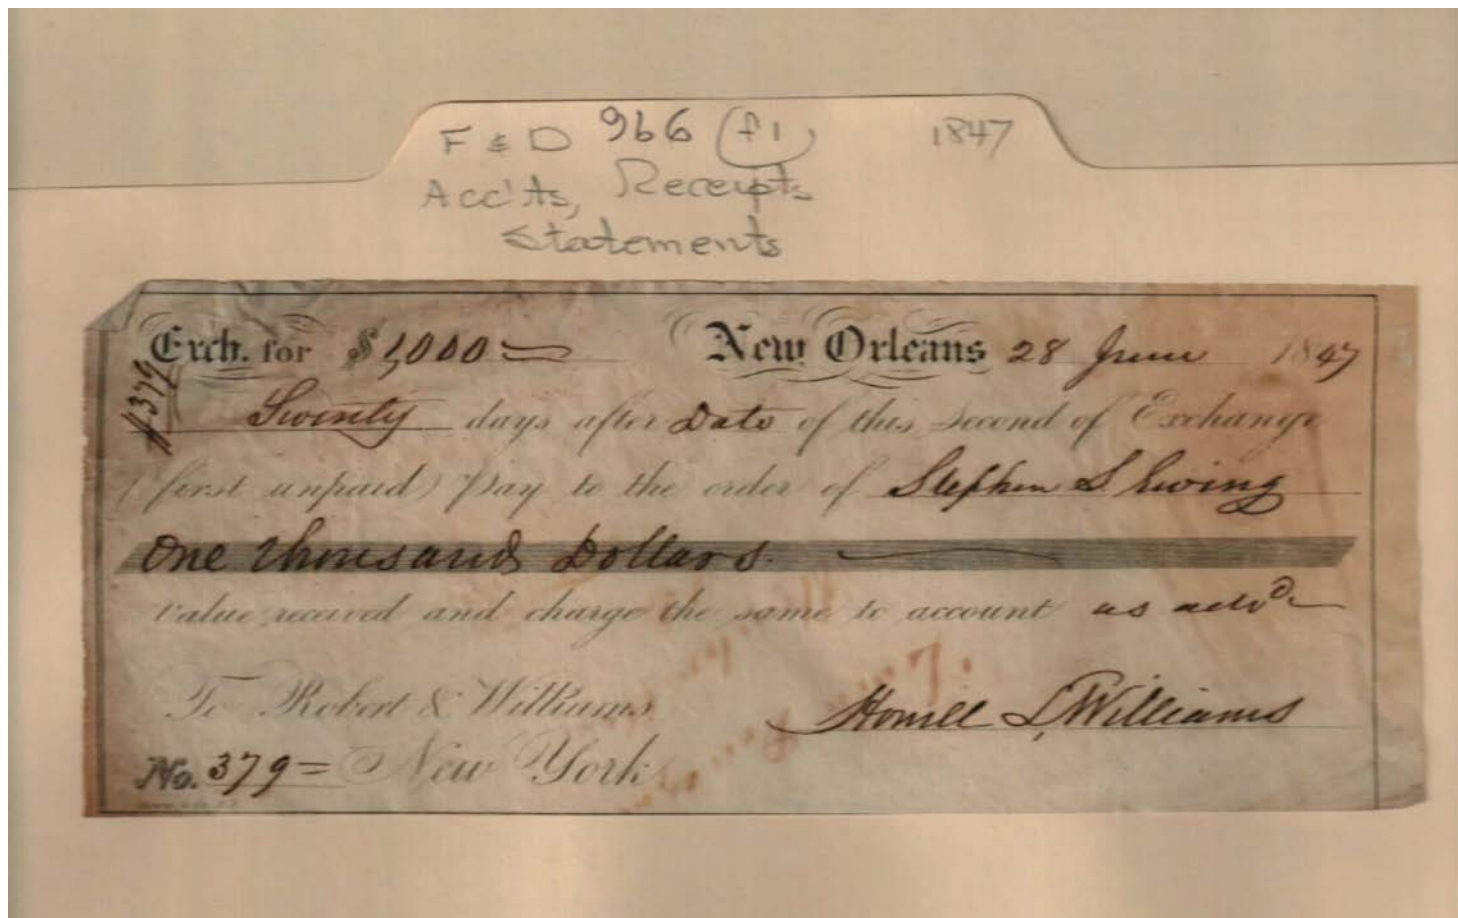 F & D 966 (f1) 1847
Acc'ts, Receipts
Statements
Exch. for $1,000= New Orleans 28 June 1847
#379
Twenty days after Date of this second of Exchange
(first unpaid) Pay to the order of Stephen S. Ewing
One thousand Dollars.
value received and charge the same to account as advd
To Robert & Williams
Howell L. Williams
No. 379= New York